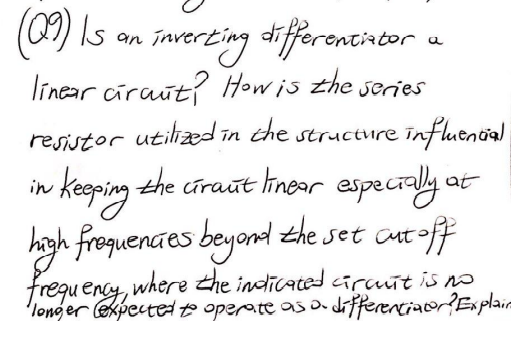 (Q9) Is an inverting differentiator a
linear circuit? How is the series
resistor utilized in the structure influencial
in keeping the circuit linear especially at
high frequencies beyond the set cutoff
frequency, where the indicated circuit is no
longer (expected to operate as a differentiator? Explain